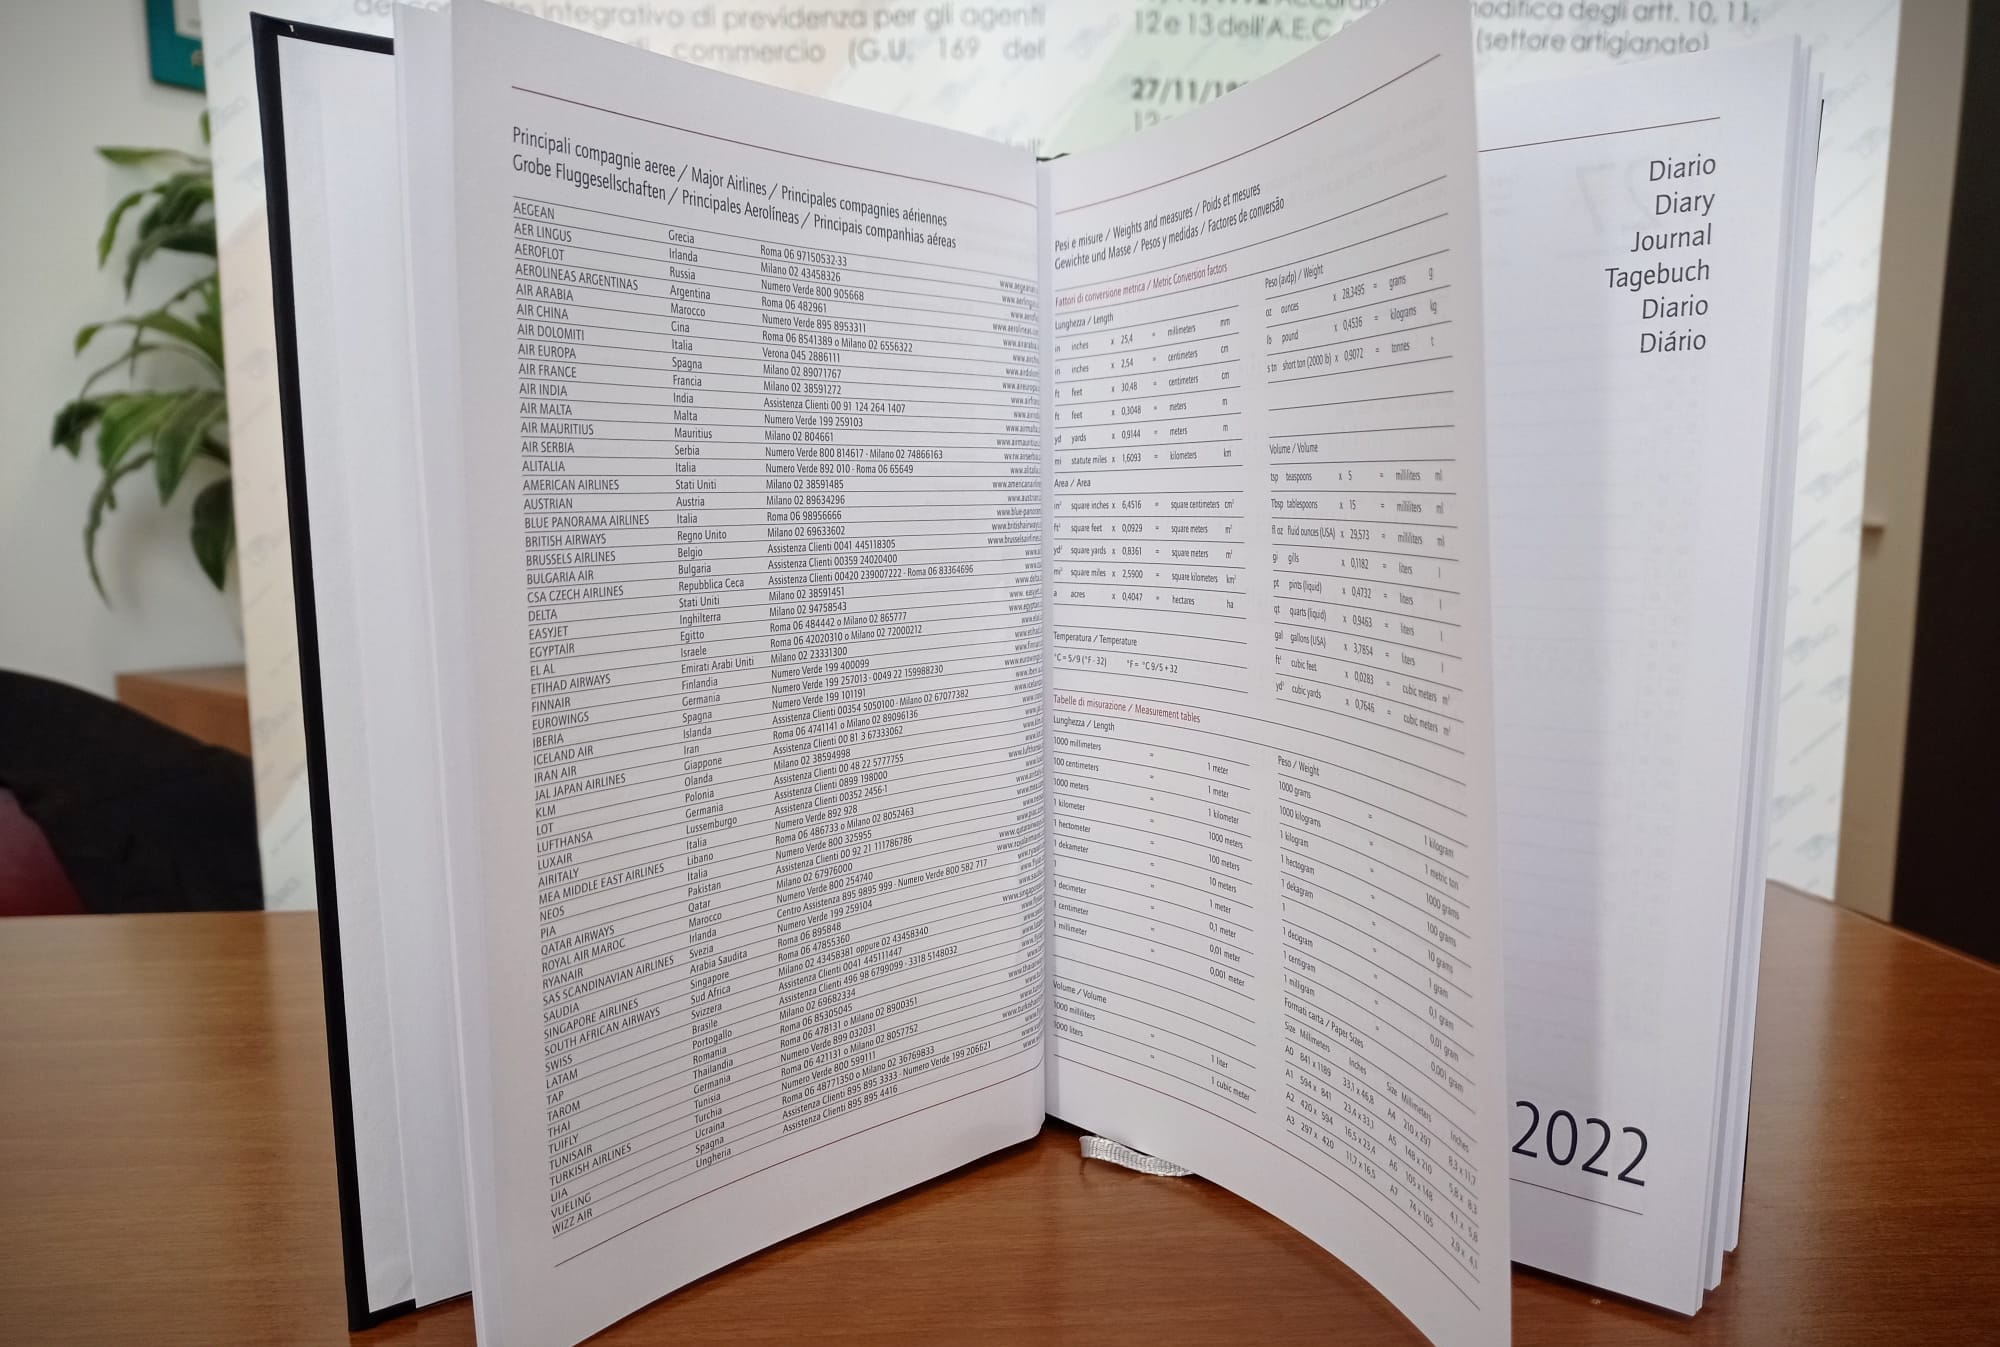 integrativo di previdenza per gli agenti
commercio (G.U. 169 del
12 e 13 dell'A.E.C.
27/11/
modifica degli artt. 10, 11,
(settore artigianato)
Principali compagnie aeree / Major Airlines / Principales compagnies aériennes
Grobe Fluggesellschaften / Principales Aerolíneas / Principais companhias aéreas
AEGEAN Grecia Roma 06 97150532-33
AER LINGUS Irlanda Milano 02 43458326
AEROFLOT Russia Numero Verde 800 905668
AEROLINEAS ARGENTINAS Argentina Roma 06 482961
AIR ARABIA Marocco Numero Verde 895 8953311
AIR CHINA Cina Roma 06 8541389 o Milano 02 6556322
AIR DOLOMITI Italia Verona 045 2886111
AIR EUROPA Spagna Milano 02 89071767
AIR FRANCE Francia Milano 02 38591272
AIR INDIA India Assistenza Clienti 00 91 124 264 1407
AIR MALTA Malta Numero Verde 199 259103
AIR MAURITIUS Mauritius Milano 02 804661
AIR SERBIA Serbia Numero Verde 800 814617 - Milano 02 74866163
ALITALIA Italia Numero Verde 892 010 - Roma 06 65649
AMERICAN AIRLINES Stati Uniti Milano 02 38591485
AUSTRIAN Austria Milano 02 89634296
BLUE PANORAMA AIRLINES Italia Roma 06 98956666
BRITISH AIRWAYS Regno Unito Milano 02 69633602
BRUSSELS AIRLINES Belgio Assistenza Clienti 0041 445118305
BULGARIA AIR Bulgaria Assistenza Clienti 00359 24020400
CSA CZECH AIRLINES Repubblica Ceca Assistenza Clienti 00420 239007222 - Roma 06 83364696
DELTA Stati Uniti Milano 02 38591451
EASYJET Inghilterra Milano 02 94758543
EGYPTAIR Egitto Roma 06 484442 o Milano 02 865777
EL AL Israele Roma 06 42020310 o Milano 02 72000212
ETIHAD AIRWAYS Emirati Arabi Uniti Milano 02 23331300
FINNAIR Finlandia Numero Verde 199 400099
EUROWINGS Germania Numero Verde 199 257013 - 0049 22 159988230
IBERIA Spagna Numero Verde 199 101191
ICELAND AIR Islanda Assistenza Clienti 00354 5050100 - Milano 02 67077382
IRAN AIR Iran Roma 06 4741141 o Milano 02 89096136
JAL JAPAN AIRLINES Giappone Assistenza Clienti 00 81 3 67333062
KLM Olanda Milano 02 38594998
LOT Polonia Assistenza Clienti 00 48 22 5777755
LUFTHANSA Germania Assistenza Clienti 0899 198000
LUXAIR Lussemburgo Assistenza Clienti 00352 2456-1
AIRITALY Italia Numero Verde 892 928
MEA MIDDLE EAST AIRLINES Libano Roma 06 486733 o Milano 02 8052463
NEOS Italia Numero Verde 800 325955
PIA Pakistan Assistenza Clienti 00 92 21 111786786
QATAR AIRWAYS Qatar Milano 02 67976000
ROYAL AIR MAROC Marocco Numero Verde 800 254740
RYANAIR Irlanda Centro Assistenza 895 9895 999 - Numero Verde 800 582 717
SAS SCANDINAVIAN AIRLINES Svezia Numero Verde 199 259104
SAUDIA Arabia Saudita Roma 06 895848
SINGAPORE AIRLINES Singapore Roma 06 47855360
SOUTH AFRICAN AIRWAYS Sud Africa Milano 02 43458381 oppure 02 43458340
SWISS Svizzera Assistenza Clienti 0041 445111447
LATAM Brasile Assistenza Clienti 496 98 6799099 - 3318 5148032
TAP Portogallo Milano 02 69682334
TAROM Romania Roma 06 85305045
THAI Thailandia Roma 06 478131 o Milano 02 8900351
TUIFLY Germania Numero Verde 899 032031
TUNISAIR Tunisia Roma 06 421131 o Milano 02 8057752
TURKISH AIRLINES Turchia Numero Verde 800 599111
UIA Ucraina Roma 06 48771350 o Milano 02 36769833
VUELING Spagna Assistenza Clienti 895 895 3333 - Numero Verde 199 206621
WIZZ AIR Ungheria Assistenza Clienti 895 895 4416
Pesi e misure / Weights and measures / Poids et mesures
Gewichte und Masse / Pesos y medidas / Factores de conversão
Fattori di conversione metrica / Metric Conversion factors
Lunghezza / Length
in inches x 25,4 = millimeters mm
in inches x 2,54 = centimeters cm
ft feet x 30,48 = centimeters cm
ft feet x 0,3048 = meters m
yd yards x 0,9144 = meters m
mi statute miles x 1,6093 = kilometers km
Area / Area
in² square inches x 6,4516 = square centimeters cm²
ft² square feet x 0,0929 = square meters m²
yd² square yards x 0,8361 = square meters m²
mi² square miles x 2,5900 = square kilometers km²
a acres x 0,4047 = hectares ha
Temperatura / Temperature
°C = 5/9 (°F - 32) °F = °C 9/5 + 32
Peso (avdp) / Weight
oz ounces x 28,3495 = grams g
lb pound x 0,4536 = kilograms kg
s tn short ton (2000 lb) x 0,9072 = tonnes t
Volume / Volume
tsp teaspoons x 5 = milliliters ml
Tbsp tablespoons x 15 = milliliters ml
fl oz fluid ounces (USA) x 29,573 = milliliters ml
gi gills x 0,1182 = liters l
pt pints (liquid) x 0,4732 = liters l
qt quarts (liquid) x 0,9463 = liters l
gal gallons (USA) x 3,7854 = liters l
ft³ cubic feet x 0,0283 = cubic meters m³
yd³ cubic yards x 0,7646 = cubic meters m³
Tabelle di misurazione / Measurement tables
Lunghezza / Length
1000 millimeters = 1 meter
100 centimeters = 1 meter
1000 meters = 1 kilometer
1 kilometer = 1000 meters
1 hectometer = 100 meters
1 dekameter = 10 meters
1 = 1 meter
1 decimeter = 0,1 meter
1 centimeter = 0,01 meter
1 millimeter = 0,001 meter
Volume / Volume
1000 milliliters = 1 liter
1000 liters = 1 cubic meter
Peso / Weight
1000 grams = 1 kilogram
1000 kilograms = 1 metric ton
1 kilogram = 1000 grams
1 hectogram = 100 grams
1 dekagram = 10 grams
1 = 1 gram
1 decigram = 0,1 gram
1 centigram = 0,01 gram
1 milligram = 0,001 gram
Formati carta / Paper Sizes
Size Millimeters Inches Size Millimeters Inches
A0 841 x 1189 33,1 x 46,8 A4 210 x 297 8,3 x 11,7
A1 594 x 841 23,4 x 33,1 A5 148 x 210 5,8 x 8,3
A2 420 x 594 16,5 x 23,4 A6 105 x 148 4,1 x 5,8
A3 297 x 420 11,7 x 16,5 A7 74 x 105 2,9 x 4,1
Diario
Diary
Journal
Tagebuch
Diario
Diário
2022